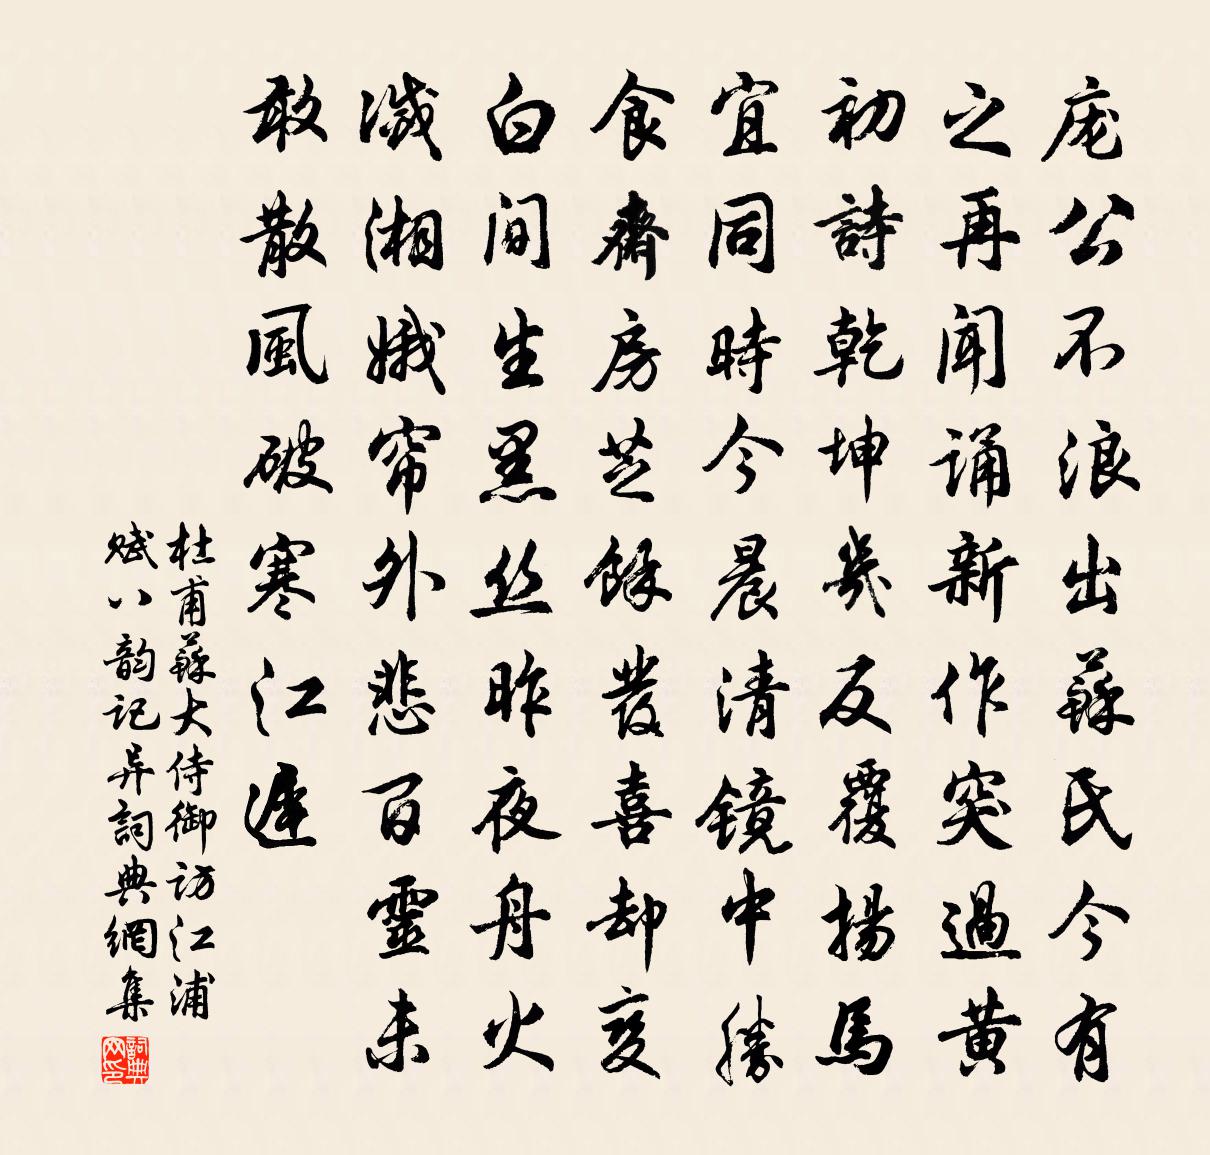 庞公不浪出蘇氏今有
之再闻誦新作突過黄
初詩乾坤幾反覆揚馬
宜同時今晨清镜中勝
食齋房芝餘發喜却变
白间生黑丝昨夜舟火
滅湘娥帘外悲百靈未
敢散風破寒江遲
杜甫蘇大侍御访江浦
赋八韵记异詞典網集
詞典网印